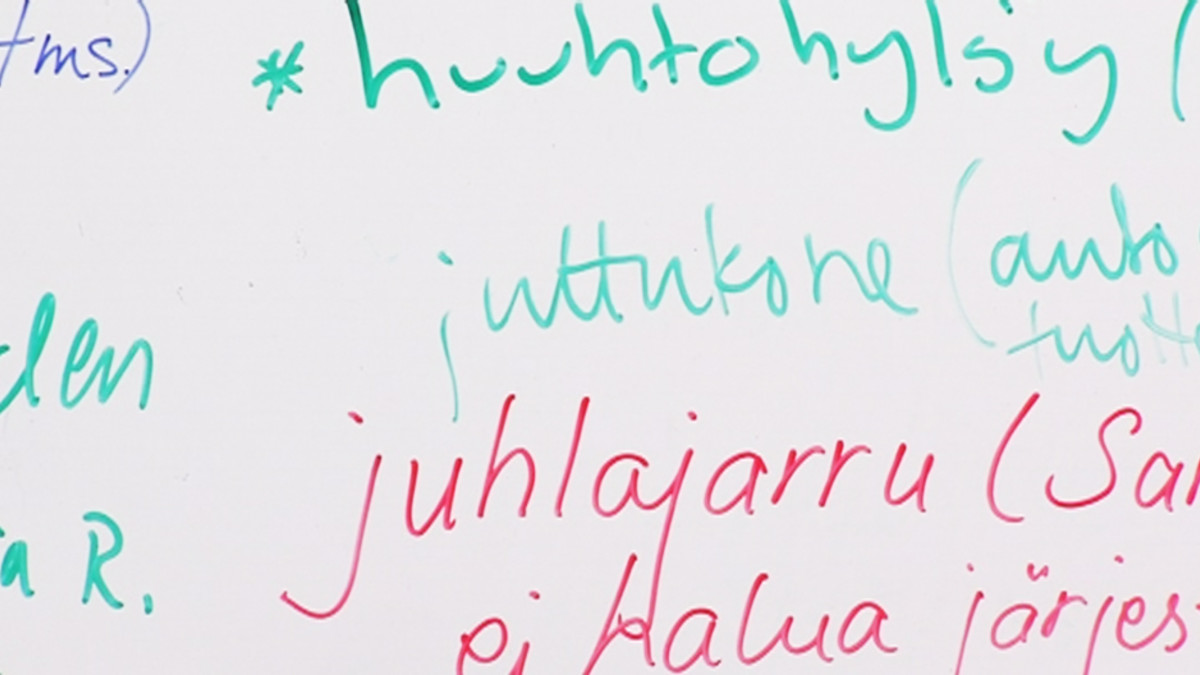 tms.)
* huuhtohylsy (
juttukone (auto
tuott
den
juhlajarru (San
a R.
ei halua järjes